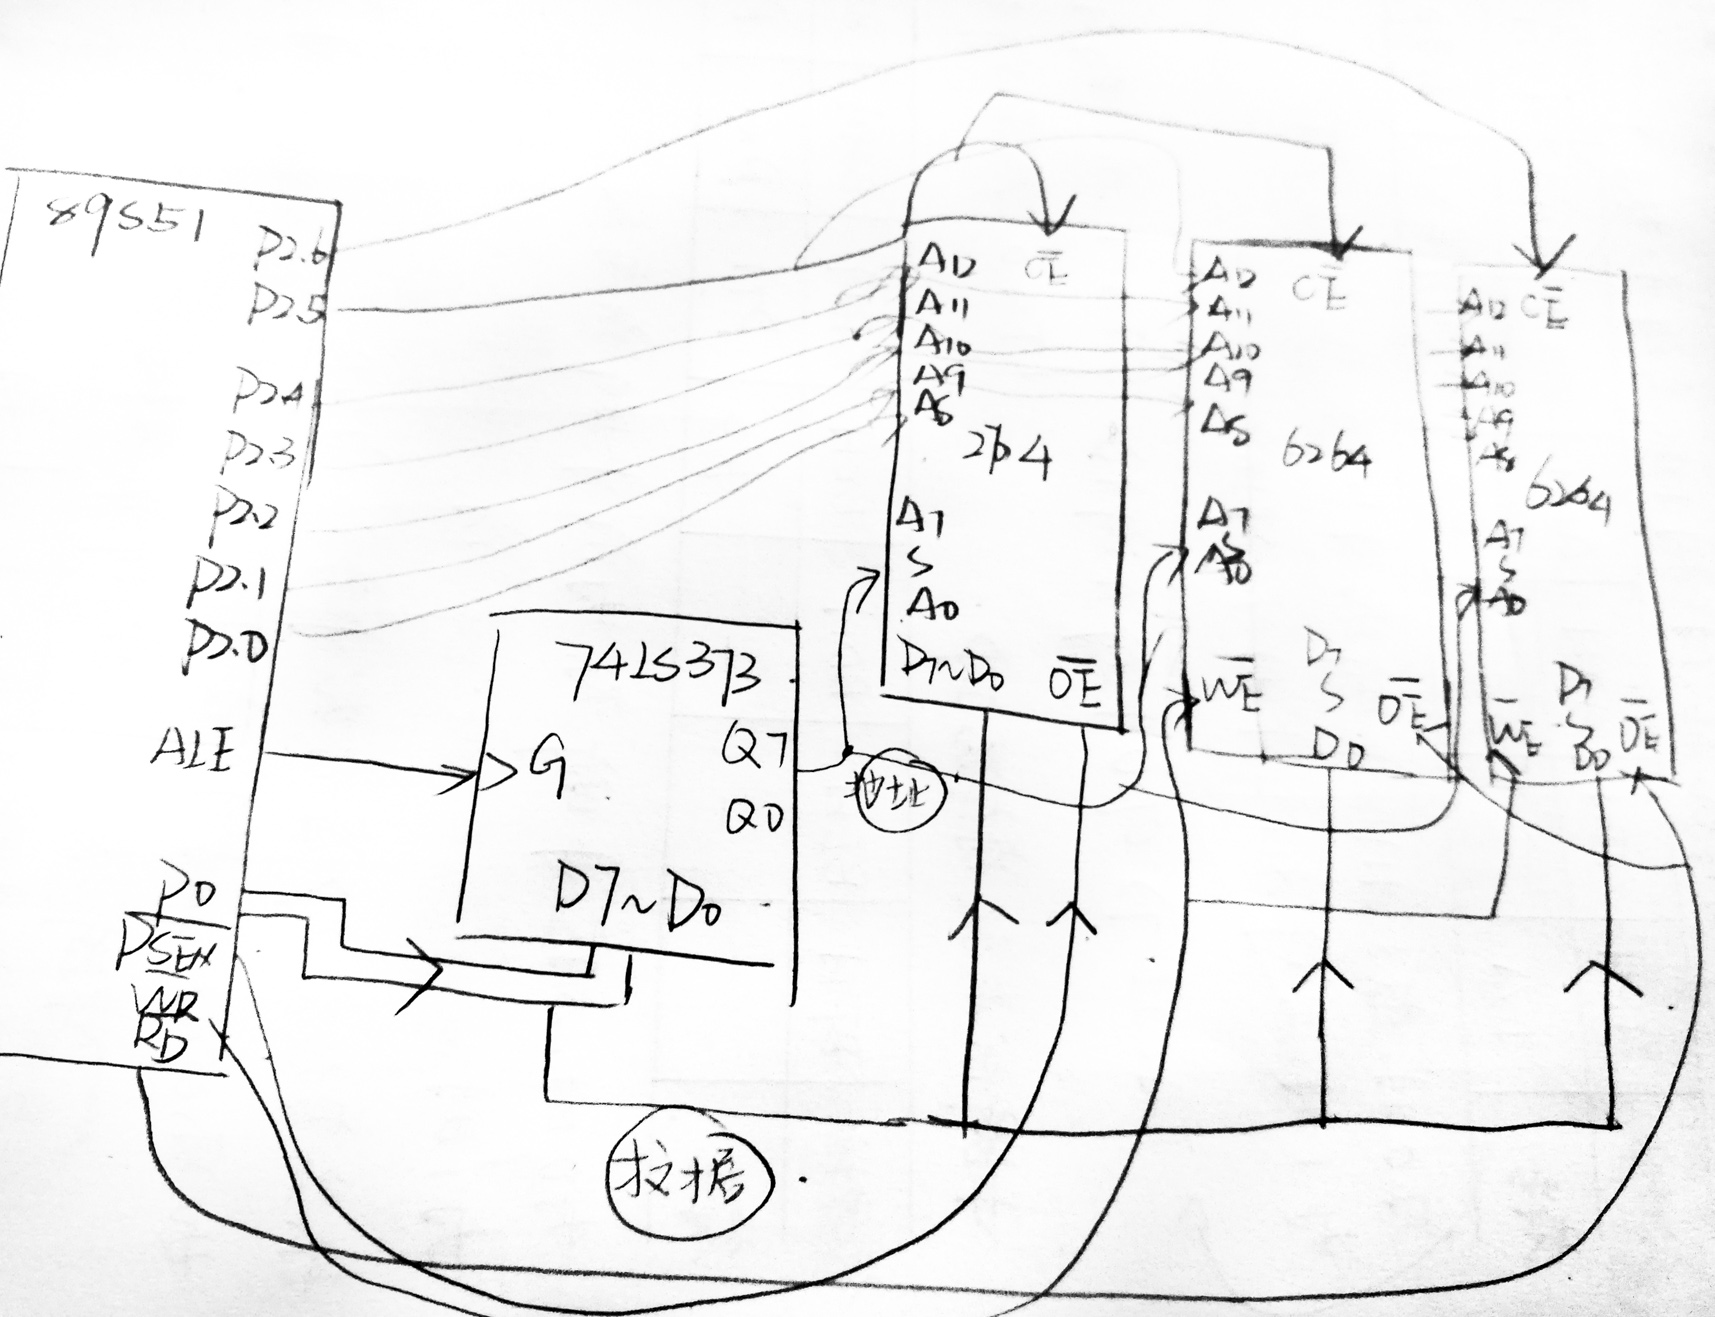 89S51
P2.6
P2.5
P2.4
P2.3
P2.2
P2.1
P2.0
ALE
P0
PSEN
WR
RD
74LS373
G
Q7
Q0
D7~D0
地址
数据
A12
CE
A11
A10
A9
A8
2764
A7
S
A0
D7~D0
OE
A12
CE
A11
A10
A9
A8
6264
A7
S
A0
WE
D7
S
D0
OE
A12
CE
A11
A10
A9
A8
6264
A7
S
A0
WE
D7
S
D0
OE